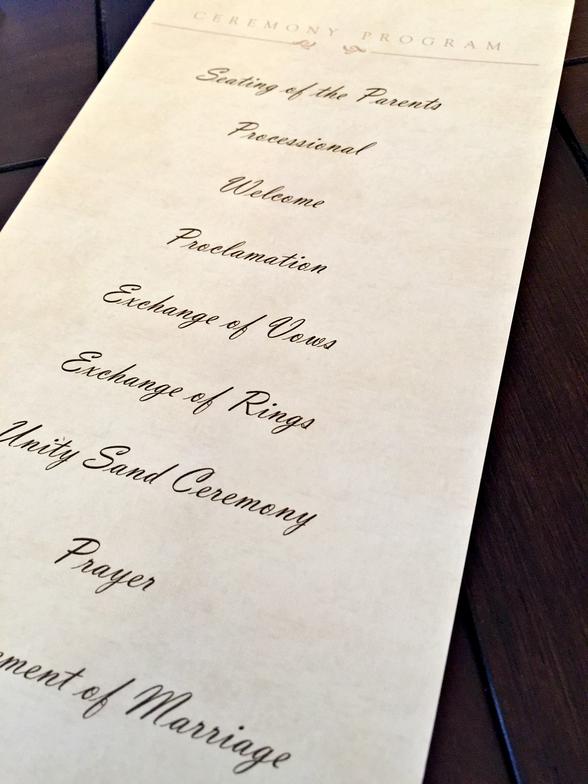 CEREMONY PROGRAM
Seating of the Parents
Processional
Welcome
Proclamation
Exchange of Vows
Exchange of Rings
Unity Sand Ceremony
Prayer
of Marriage